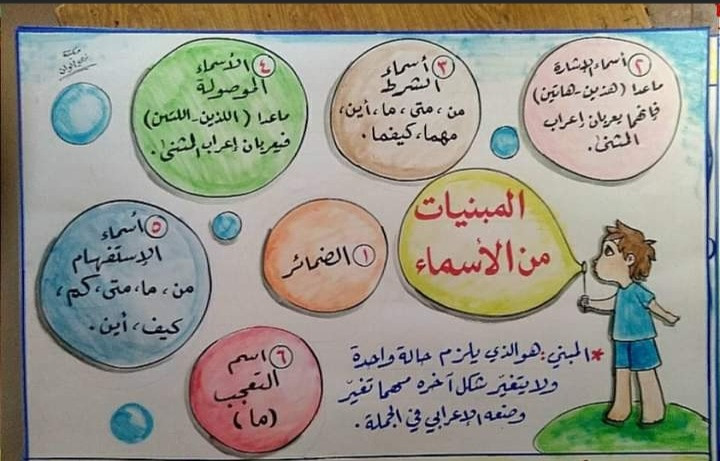 المبنيات
من الأسماء
١ الضمائر
٢ أسماء الإشارة
ماعدا (هذين-هاتين)
فإنهما يعربان إعراب
المثنى.
٣ أسماء
الشرط
من، متى، ما، أين،
مهما، كيفما.
٤ الأسماء
الموصولة
ماعدا (اللذين-اللتين)
فيعربان إعراب المثنى.
٥ أسماء
الإستفهام
من، ما، متى، كم،
كيف، أين.
٦ اسم
التعجب
(ما)
*المبني: هو الذي يلزم حالة واحدة
ولا يتغيّر شكل آخره مهما تغيّر
وضعه الإعرابي في الجملة.